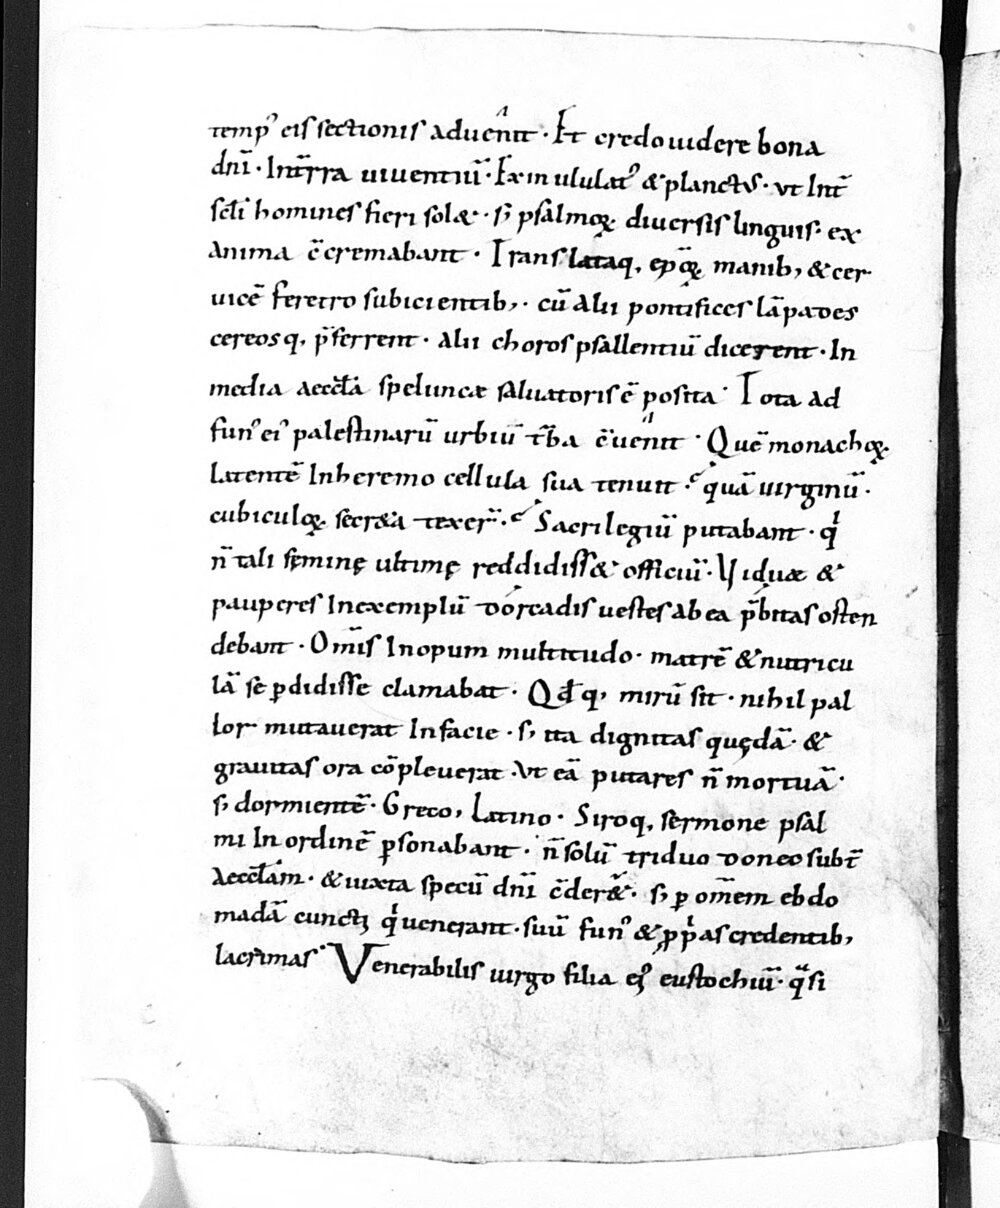 temp᾽ eis sectionis aduen̂it · Et credo uidere bona
dn̄i · In t̄rra uiuentiū · Ex in ululat᾽ & planctus · ut int̄
sc̄li homines fieri sol& · s; psalmoꝝ diuersis linguis · ex
Anima c̄cremabant · Translataq, ep̄oꝝ manib; & cer
uicē feretro subicientib; · cū alii pontifices lāpades
cereosq, p̄ferrent · alii choros psallentiū dicerent · In
media aecclā speluncæ saluatoris ē posita · Tota ad
fun᾽ ei᾽ palestinarū urbiū t̄ba c̄uenit · Quē monachoꝝ
latentē In heremo cellula sua tenuit · quā uirginū ·
cubiculoꝝ secr&a texer̄ · Sacrilegiū putabant · qͥ
n̄ tali fęminę ultimę reddidiss& officiū · Viduæ &
pauperes In exemplū dorcadis uestes ab ea p̄bitas osten
debant · Om̄is Inopum multitudo · matrē & nutricu
lā se ꝑdidisse clamabat · Qđq, mirū sit · nihil pal
lor mutauerat In facie · s; ita dignitas quędā · &
grauitas ora cōpleuerat · Vt eā putares n̄ mortuā ·
s; dormientē · Greco, Latino · Siroq, sermone psal
mi In ordinē ꝑsonabant · n̄ solū triduo donec subt̄
Aecclām · & iuxta specū dn̄i c̄der& · s; ꝑ om̄em ebdo
madā cunctꝫ qͥ uenerant · suū fun᾽ & ꝓpͥas credentib;
lacrimas · Venerabilis uirgo filia eꝰ eustochiū · qͣsi